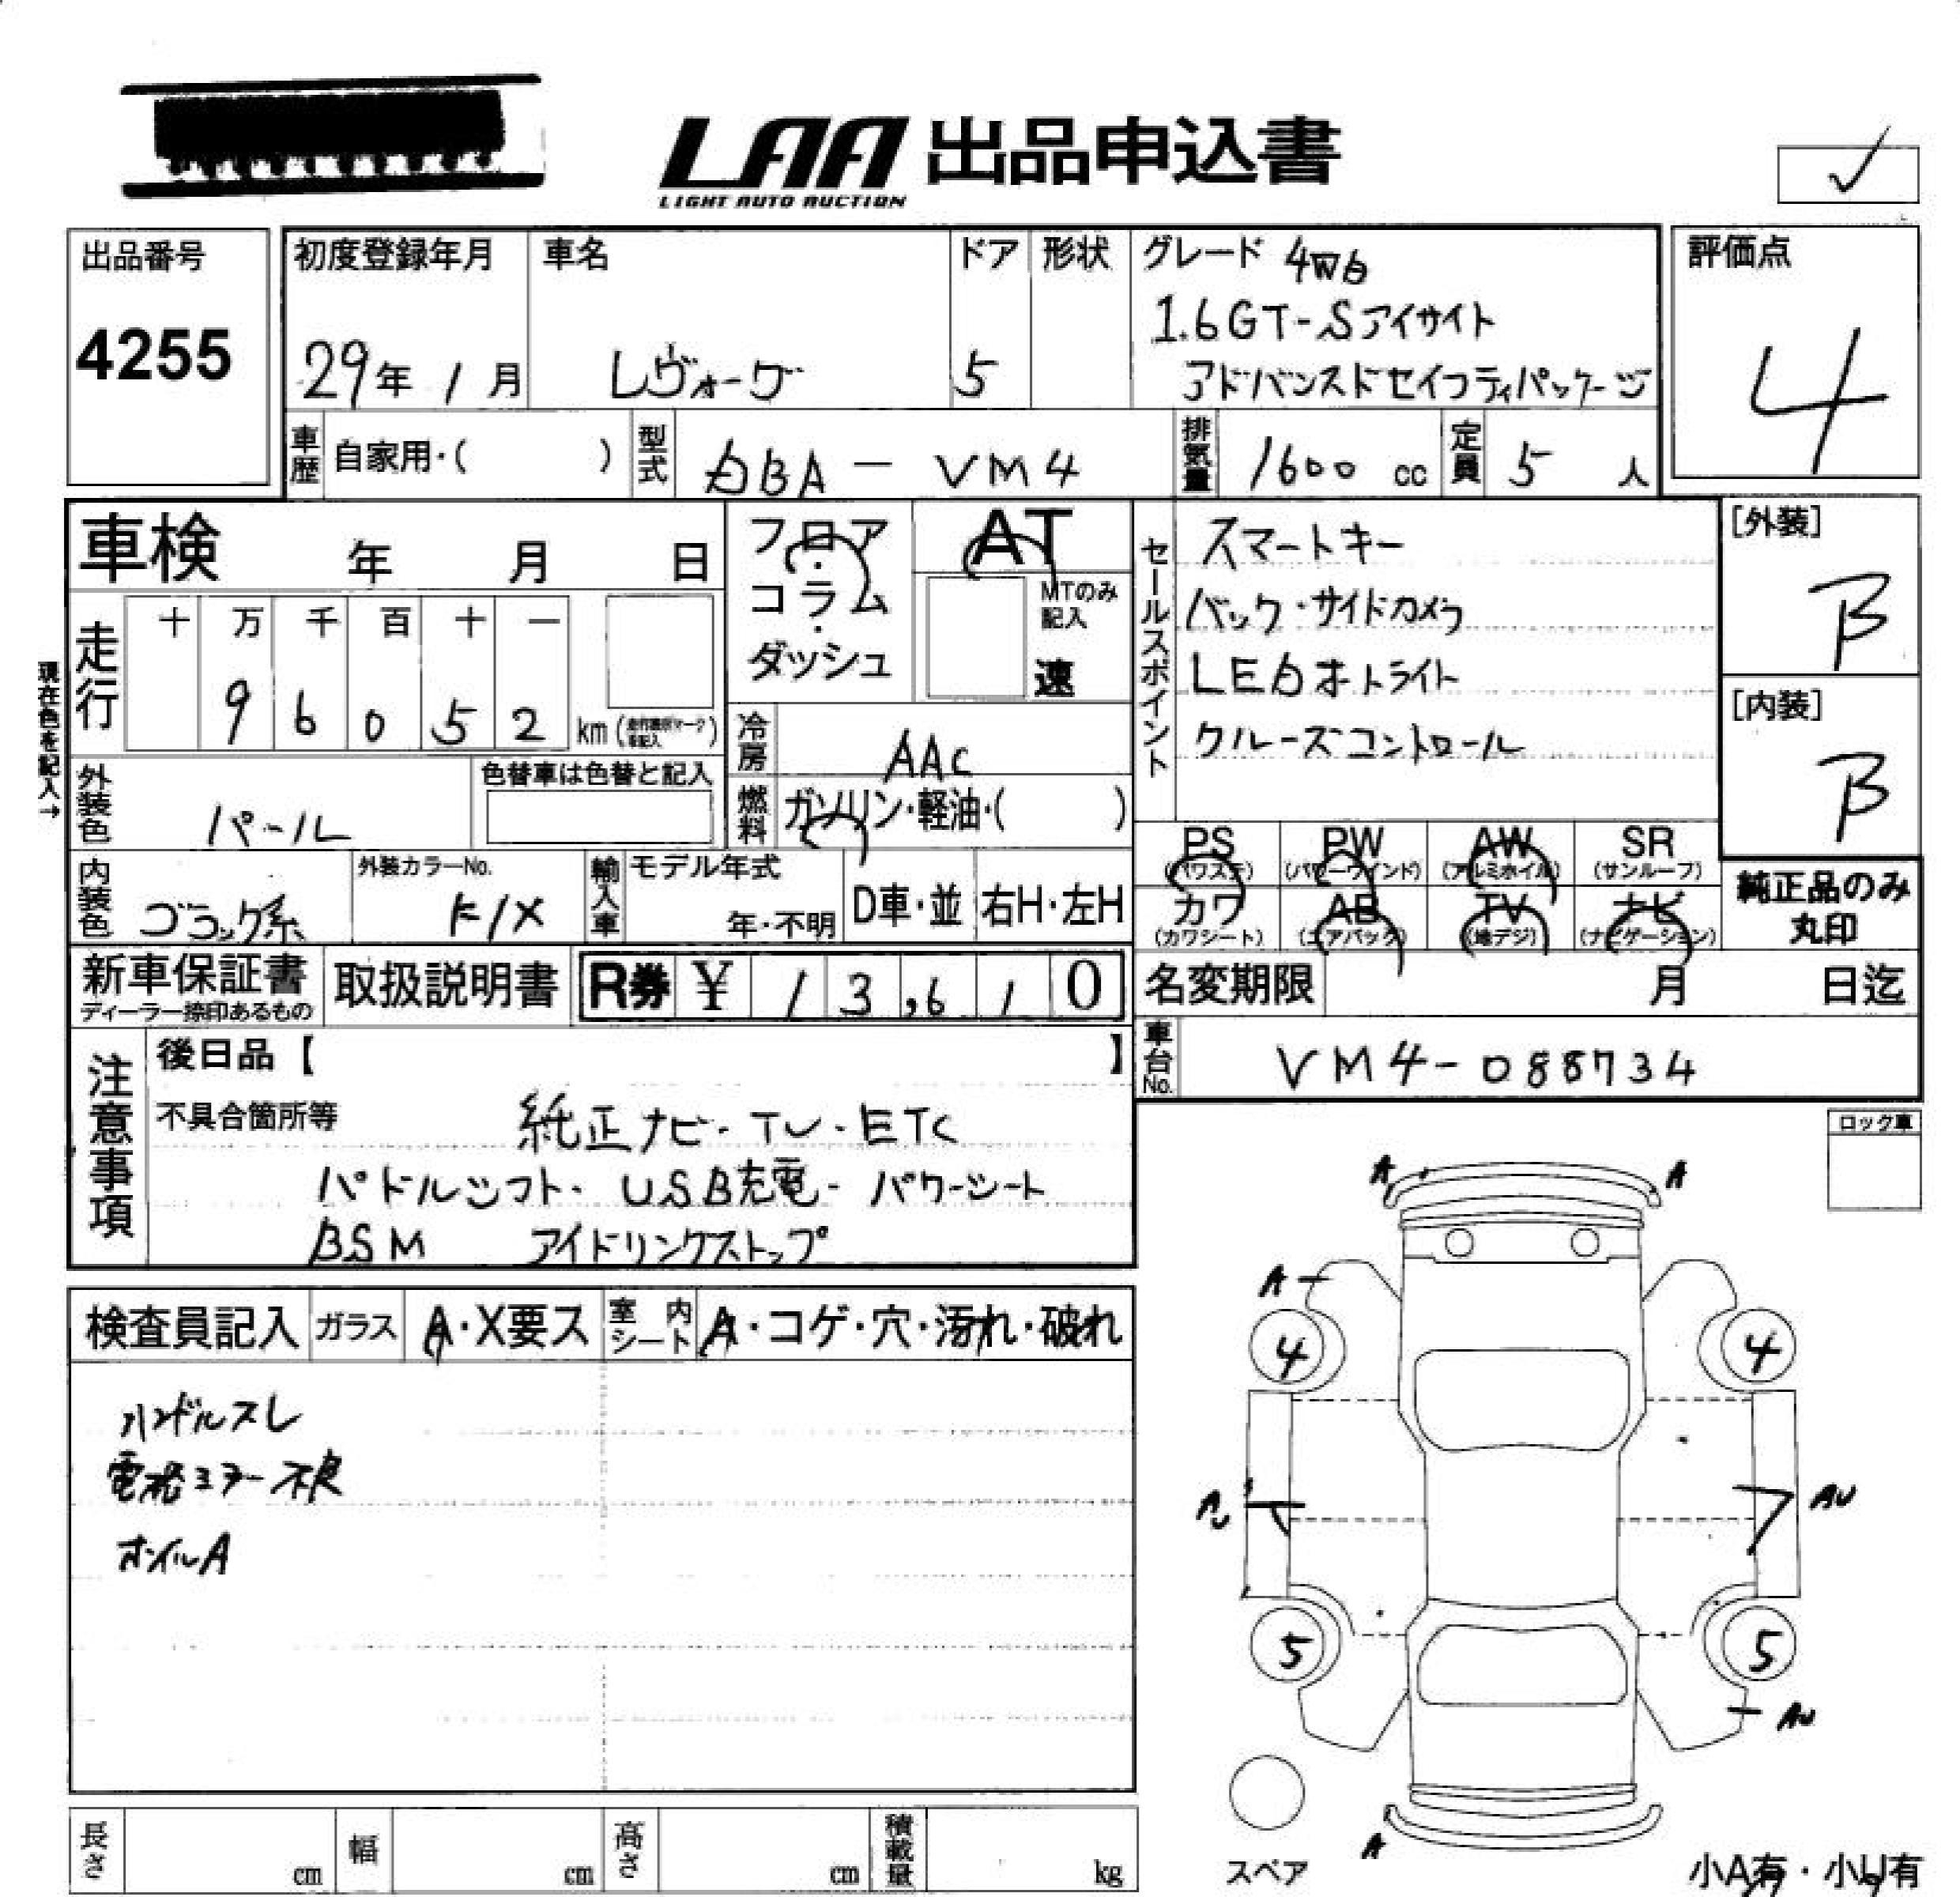 LAA 出品申込書
LIGHT AUTO AUCTION
✓
出品番号
4255
初度登録年月
29年 1月
車名
レヴォーグ
ドア
5
形状
グレード 4WD
1.6GT-Sアイサイト
アドバンスドセイフティパッケージ
評価点
4
車歴 自家用・( )
型式 DBA-VM4
排気量 1600 cc
定員 5 人
車検 年 月 日
フロア・コラム・ダッシュ
AT
MTのみ記入
速
セールスポイント
スマートキー
バック・サイドカメラ
LEDオートライト
クルーズコントロール
[外装]
B
[内装]
B
現在色を記入→
走行
十 万 千 百 十 一
9 6 0 5 2
km
冷房 AAC
燃料 ガソリン・軽油・( )
外装色 パール
色替車は色替と記入
内装色 ブラック系
外装カラーNo.
K1X
輸入車 モデル年式
年・不明
D車・並
右H・左H
PS (パワステ)
PW (パワーウインド)
AW (アルミホイル)
SR (サンルーフ)
カワ (カワシート)
AB (エアバック)
TV (地デジ)
ナビ (ナビゲーション)
純正品のみ
丸印
新車保証書
ディーラー捺印あるもの
取扱説明書
R券 ¥ 13,610
名変期限 月 日迄
車台No. VM4-088734
注意事項
後日品【 】
不具合箇所等
純正ナビ・TV・ETC
パドルシフト・USB充電・パワーシート
BSM アイドリングストップ
ロック車
検査員記入
ガラス A・X要ス
室内シート A・コゲ・穴・汚れ・破れ
ハンドルスレ
電格ミラー不良
ホイルA
A A
A
4 4
AU AU
5 5
AU
A
スペア
小A有・小U有
長さ cm
幅 cm
高さ cm
積載量 kg